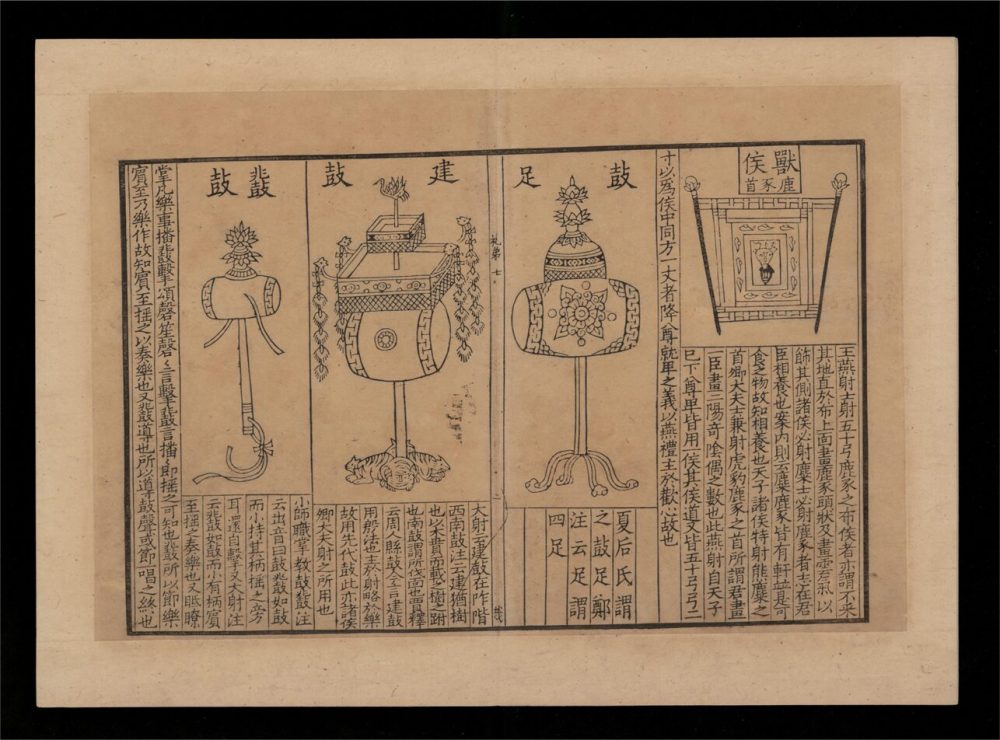 獸侯
鹿豕首
王燕射士射五十弓鹿豕之布侯者亦謂不采
其地直於布上面畫鹿豕頭狀及畫雲氣以
飾其側諸侯必射麋士必射鹿豕者志在君
臣相養也案內則云麋鹿豕皆有軒並是可
食之物故知相養也天子諸侯特射熊麋之
首卿大夫士兼射虎豹鹿豕之首所謂君畫
一臣畫二陽奇陰偶之數也此燕射自天子
巳下尊卑皆用一侯其侯道又皆五十弓弓二
寸以為侯中同方一丈者降尊就卑之義以燕禮主於歡心故也
鼓足
夏后氏謂
之鼓足鄭
注云足謂
四足
礼第七
二
建鼓
大射云建鼓在阼階
西南鼓注云建猶樹
也以木貫而載之樹之跗
也南鼓謂所伐面也賈釋
云周人縣鼓今言建鼓
用殷法也主於射略於樂
故用先代鼓此亦諸侯
卿大夫射之所用也
鼗鼓
小師職掌教鼓鼗注
云出音曰鼓鼗如鼓
而小持其柄搖之旁
耳還自擊又大射注
云鼗如鼓而小有柄賓
至搖之奏樂也又眡瞭
掌凡樂事播鼗擊頌磬笙磬磬言擊鼗言播播即搖之可知也鼗所以節樂
賓至乃樂作故知賓至搖之以奏樂也又鼗導也所以導鼓聲或節唱之終也